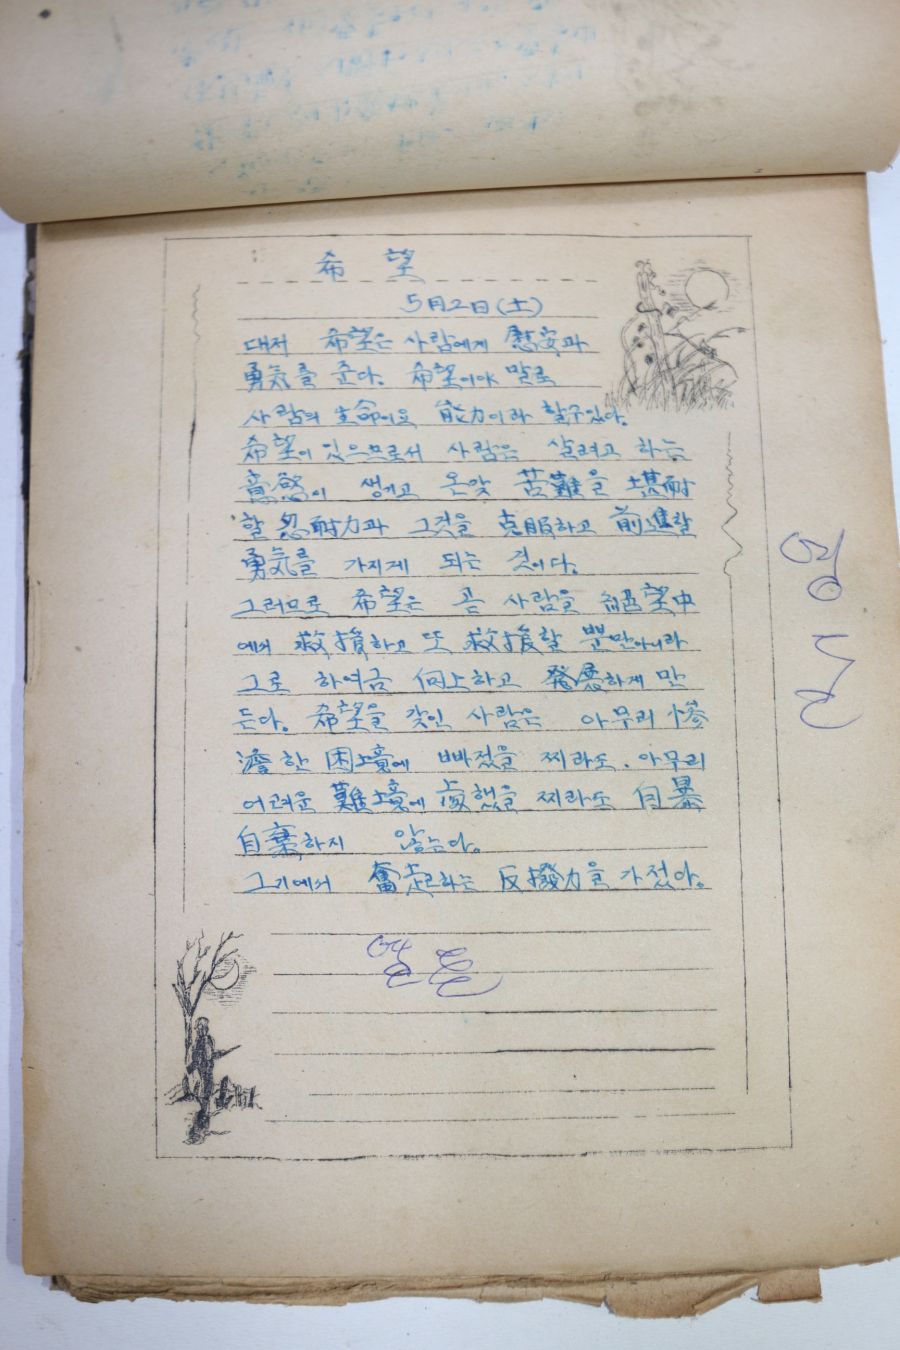 希望
5月2日(土)
대저 希望은 사람에게 慰安과
勇気를 준다. 希望이야 말로
사람의 生命이요 能力이라 할수있다.
希望이 있으므로서 사람은 살려고 하는
意慾이 생기고 온갖 苦難을 堪耐
할 忍耐力과 그것을 克服하고 前進할
勇気를 가지게 되는 것이다.
그러므로 希望은 곧 사람을 絕望中
에서 救援하고 또 救援할 뿐만아니라
그로 하여금 向上하고 發展하게 만
든다. 希望을 갖인 사람은 아무리 慘
澹한 困境에 빠졌을 찌라도. 아무리
어려운 難境에 處했을 찌라도 自暴
自棄하지 않는다.
그기에서 奮起하는 反撥力을 가졌다.